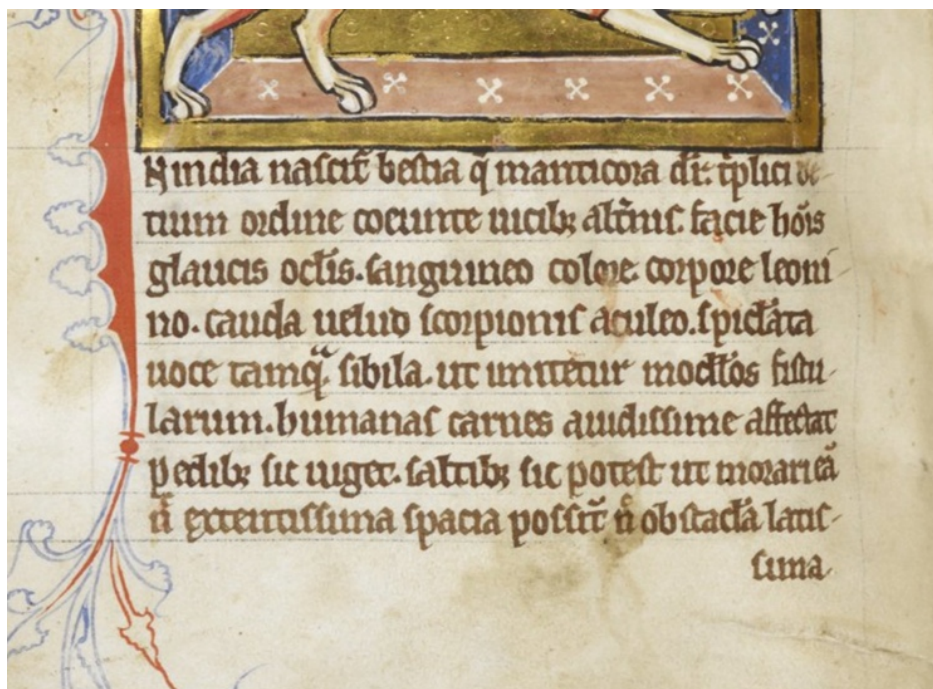 N india nascit̄ bestia q̄ manticora dr̄. t̄plici de-
tium ordine coeunte uicib; alt̄nis. facie hoīs
glaucis oclīs. sanguineo colore. corpore leoni
no. cauda uelud scorpionis aculeo. spiclāta
uoce tamqᷓ sibila. ut imitetur modlōs fistu-
larum. humanas carnes auidissime affectat
pedib; sic uiget. saltib; sic potest ut morari eā
n̄ extentissima spacia possit̄ n̄ obstacla latis-
sima.